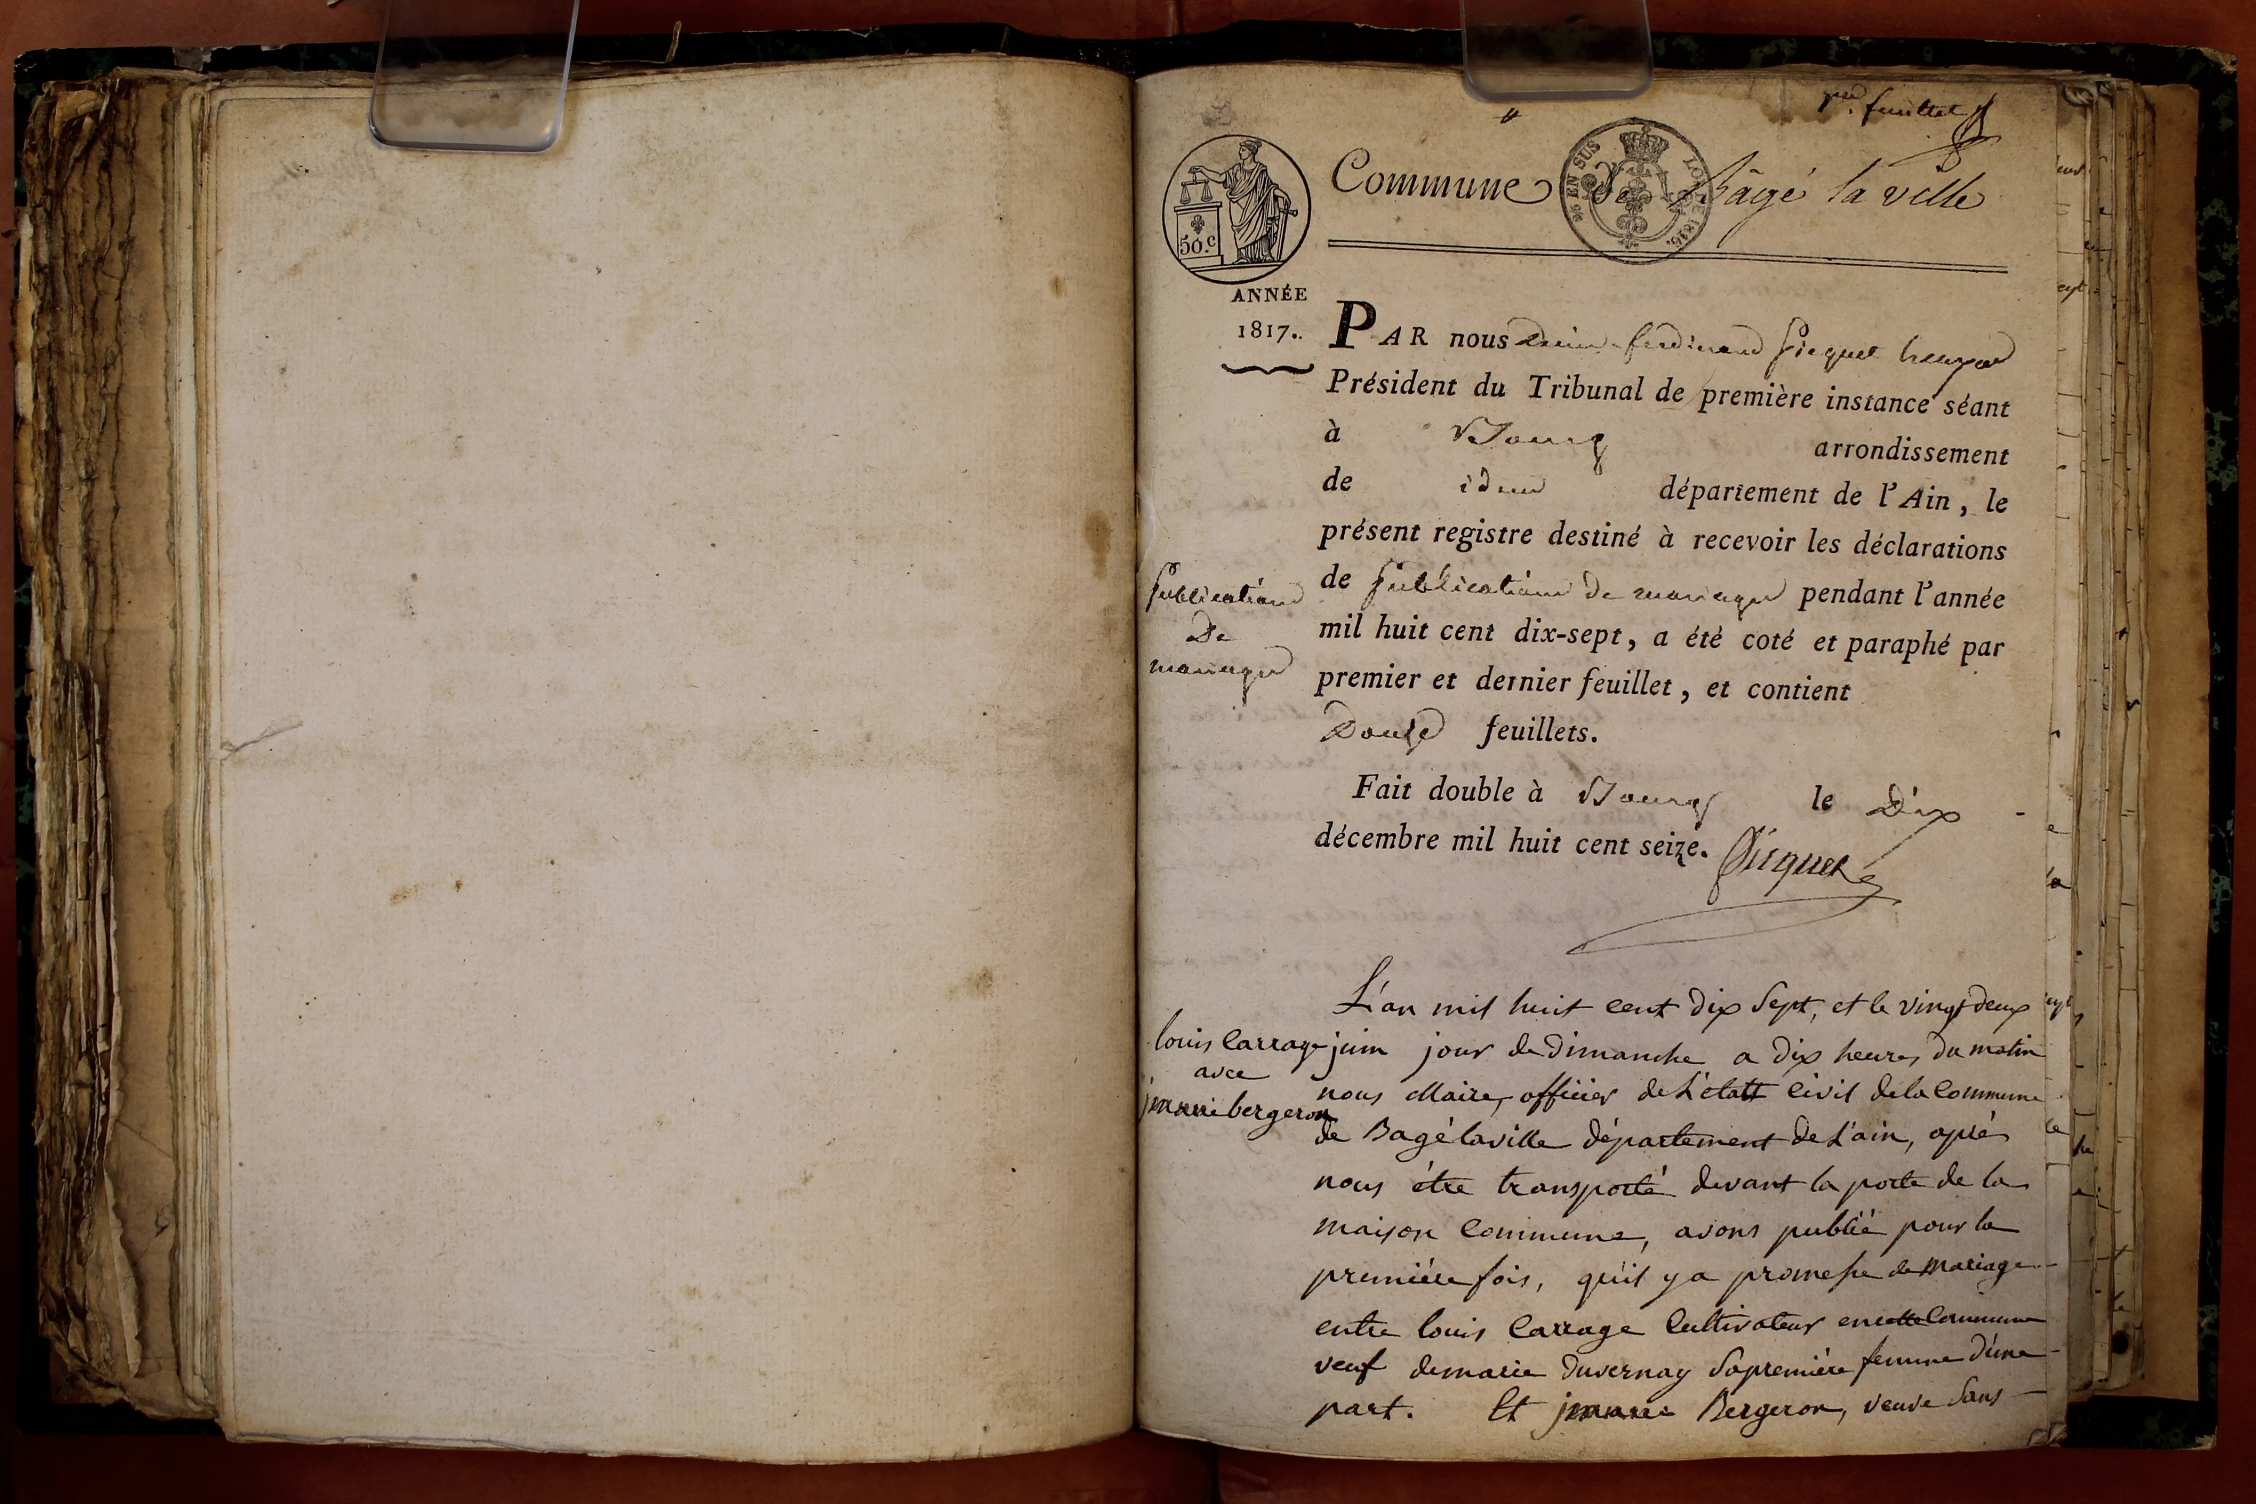 pr. feuillet
50.c
26 EN SUS LOI DE 1816.
Commune de Bâgé la ville
ANNÉE
1817.
PAR nous ferdinand picquet
Président du Tribunal de première instance séant
à Bourg arrondissement
de idem département de l'Ain, le
présent registre destiné à recevoir les déclarations
de publications de mariages pendant l'année
mil huit cent dix-sept, a été coté et paraphé par
premier et dernier feuillet, et contient
Douze feuillets.
publications
De
mariages
Fait double à Bourg le Dix
décembre mil huit cent seize. Picquet
L'an mil huit cent dix Sept, et le vingt deux
juin jour de dimanche a dix heures du matin
nous Maire, officier de L'étatt Civil de la Commune
de Bagé laville département de L'ain, après
nous être transporté devant la porte de la
maison Commune, avons publié pour la
première fois, qu'il y a promesse de mariage
entre louis Carrage Cultivateur en cette Commune
veuf de marie duvernay Sa première femme d'une
part. Et jeanne Bergeron, veuve Sans
louis Carrage
avec
jeanne bergeron